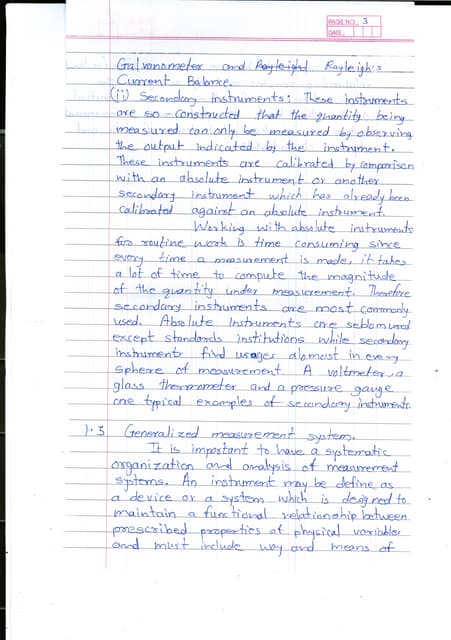 PAGE NO.: 3
DATE:
Galvanometer and Rayleighl Rayleigh's
Current Balance.
(ii) Secondary instruments: These instruments
are so-constructed that the quantity being
measured can only be measured by observing
the output indicated by the instrument.
These instruments are calibrated by comparison
with an absolute instrument or another
secondary instrument which has already been
calibrated against an absolute instrument.
Working with absolute instruments
for routine work is time consuming since
every time a measurement is made, it takes
a lot of time to compute the magnitude
of the quantity under measurement. Therefore
secondary instruments are most commonly
used. Absolute Instruments are seldom used
except standards institutions while secondary
instruments find usages almost in every
sphere of measurement. A voltmeter, a
glass thermometer and a pressure gauge
are typical examples of secondary instruments.
1.3 Generalized measurement system.
It is important to have a systematic
organization and analysis of measurement
systems. An instrument may be define as
a device or a system which is designed to
maintain a functional relationship between
prescribed properties of physical variables
and must include way and means of